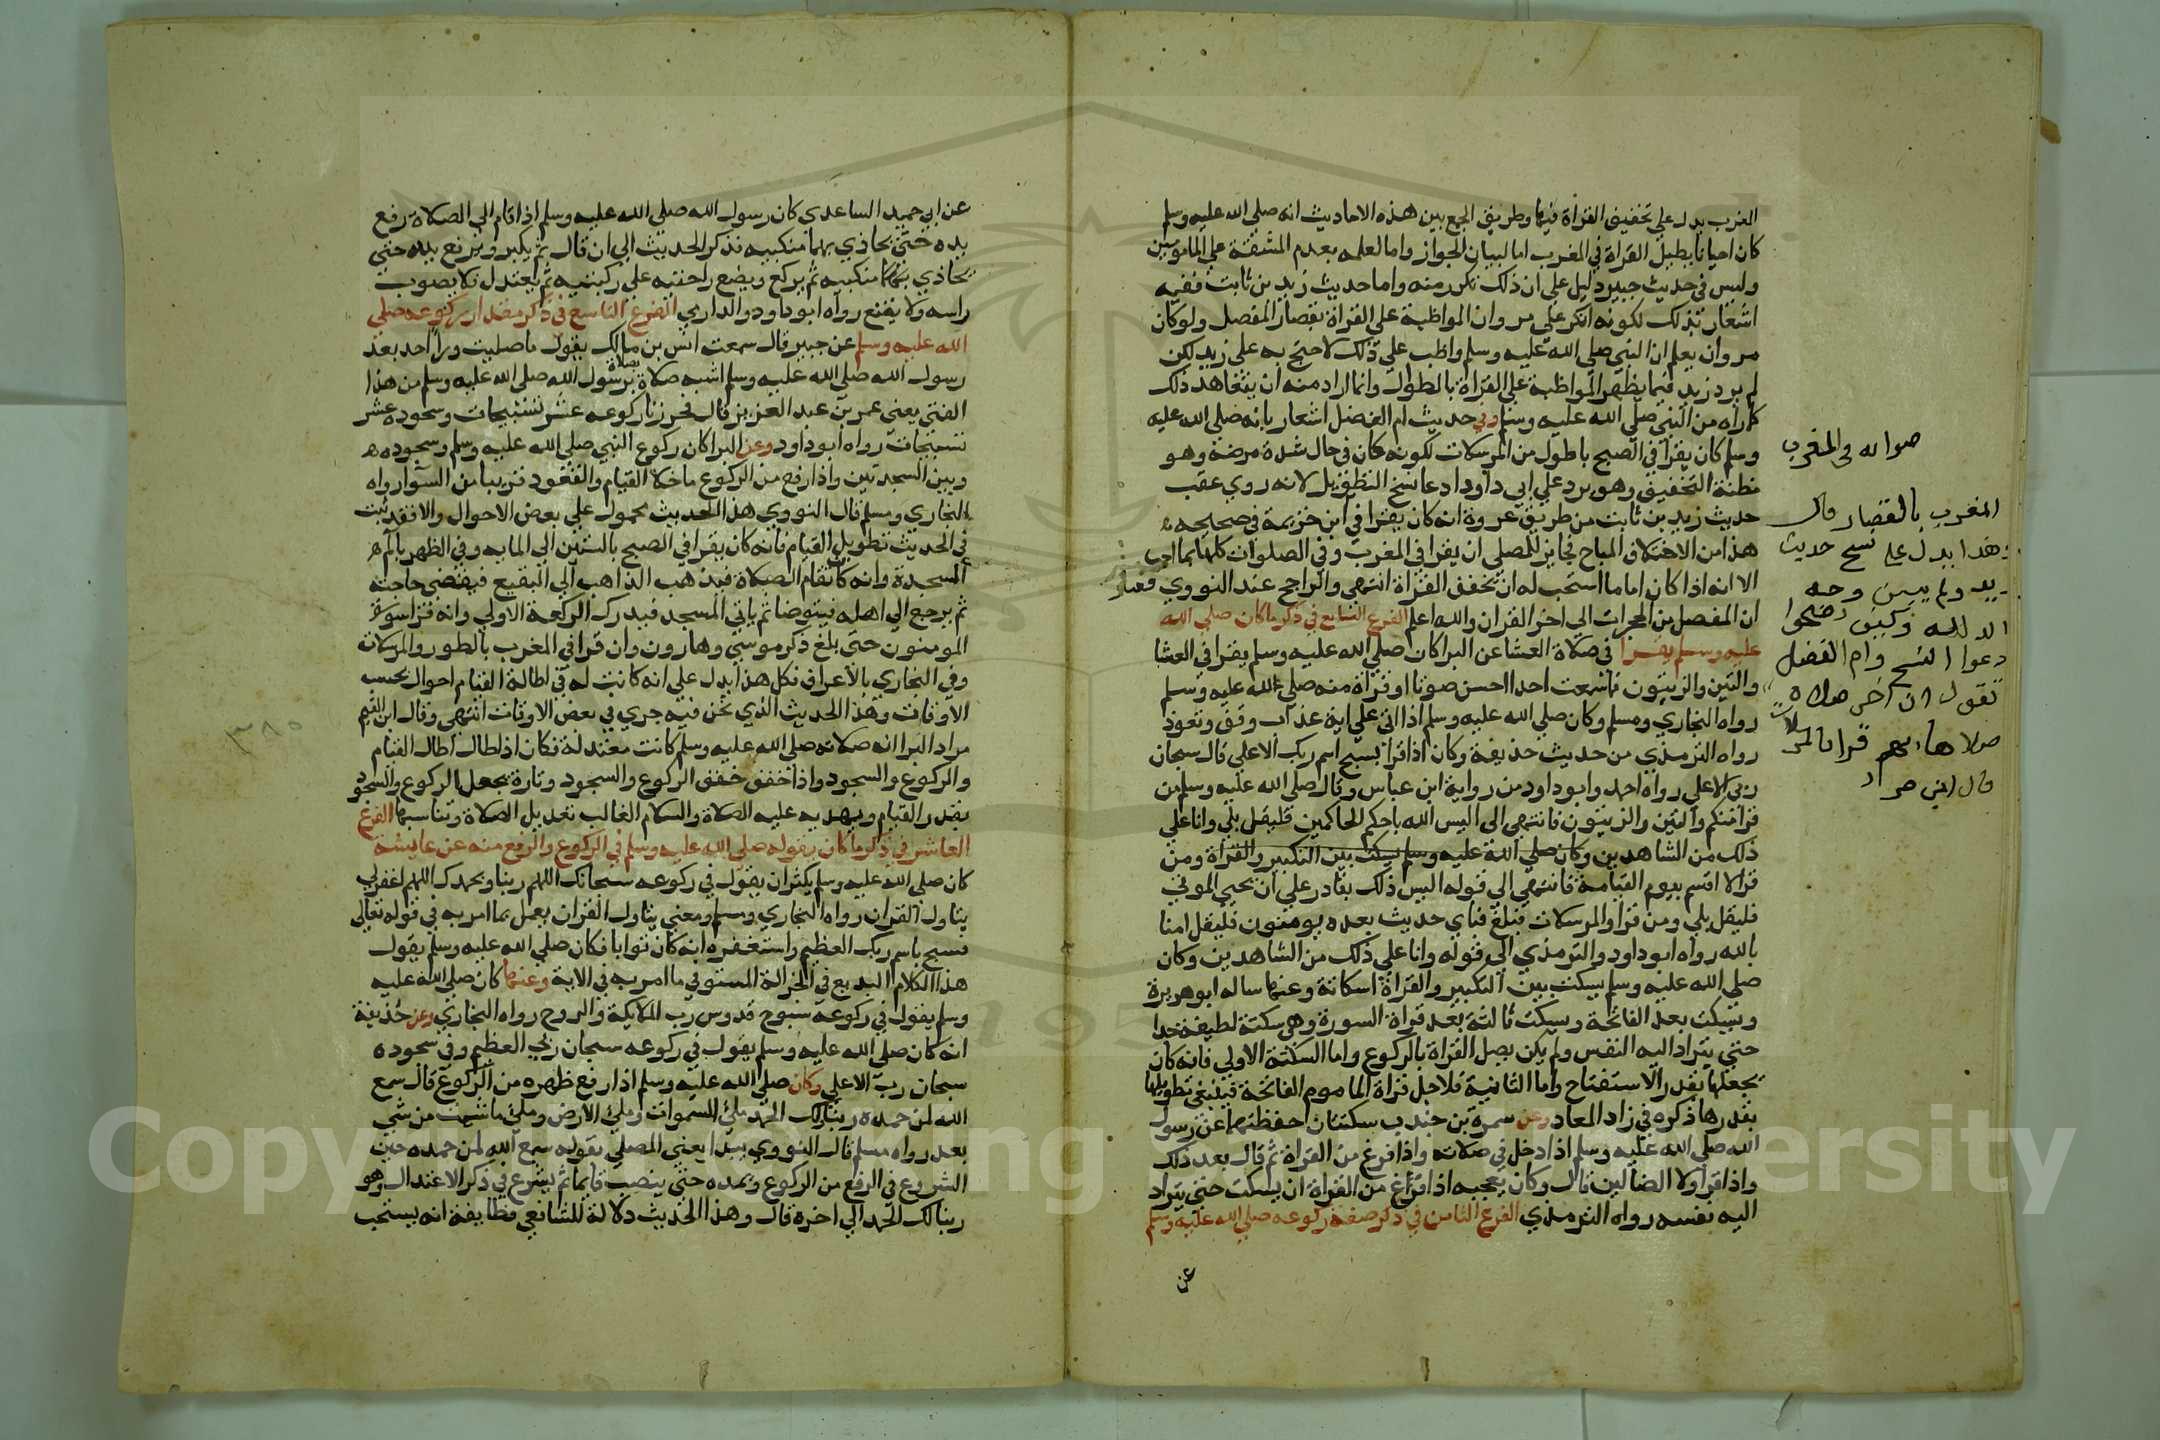 المغرب يدل على تخفيف القراة فيها وطريق الجمع بين هذه الاحاديث انه صلى الله عليه وسلم
كان احيانا يطيل القراة في المغرب اما لبيان الجواز واما لعلمه بعدم المشقة على المامومين
وليس في حديث جبير دليل على ان ذلك تكرر منه واما حديث زيد بن ثابت ففيه
اشعار بذلك لكونه انكر على مروان المواظبة على القراة بقصار المفصل ولو كان
مروان يعلم ان النبي صلى الله عليه وسلم واظب على ذلك لاحتج به على زيد لكن
لم يرد زيد فيما يظهر المواظبة على القراة بالطوال وانما اراد منه ان يتعاهد ذلك
كما راه من النبي صلى الله عليه وسلم وفي حديث ام الفضل اشعار بانه صلى الله عليه
وسلم كان يقرا في الصبح باطول من المرسلات لكونه كان في حال شدة مرضه وهو
مظنة التخفيف وهو يرد على ابي داود ادعا نسخ التطويل لانه روي عقب
حديث زيد بن ثابت من طريق عروة انه كان يقرا في ابن خزيمة في صحيحه
هذا من الاختلاف المباح فجايز للمصلي ان يقرا في المغرب وفي الصلوات كلها بما احب
الا انه اذا كان اماما استحب له ان تخفف القراة انتهى والراجح عند النووي
ان المفصل من الحجرات الى اخر القران والله اعلم الفرع السابع في ذكر ما كان صلى الله
عليه وسلم يقرا في صلاة العشا عن البرا كان صلى الله عليه وسلم يقرا في العشا
والتين والزيتون فما سمعت احدا احسن صوتا او قراة منه صلى الله عليه وسلم
رواه البخاري ومسلم وكان صلى الله عليه وسلم اذا اتى على اية عذاب وقف وتعوذ
رواه الترمذي من حديث حذيفة وكان اذا قرا بسبح اسم ربك الاعلى قال سبحان
ربي الاعلى رواه احمد وابو داود من رواية ابن عباس وقال صلى الله عليه وسلم من
قرا منكم والتين والزيتون فانتهى الى اليس الله باحكم الحاكمين فليقل بلى وانا على
ذلك من الشاهدين وكان صلى الله عليه وسلم يسكت بين التكبير والقراة ومن
قرا لا اقسم بيوم القيامة فانتهى الى قوله اليس ذلك بقادر على ان يحيي الموتى
فليقل بلى ومن قرا والمرسلات فبلغ فباي حديث بعده يومنون فليقل امنا
بالله رواه ابو داود والترمذي الى قوله وانا على ذلك من الشاهدين وكان
صلى الله عليه وسلم يسكت بين التكبير والقراة اسكاتة وعنها ساله ابو هريرة
ويسكت بعد الفاتحة ويسكت ثالثة بعد قراة السورة وهي سكتة لطيفة جدا
حتى يتراد اليه النفس ولم يكن يصل القراة بالركوع واما السكتة الاولى فانه كان
يجعلها بقدر الاستفتاح واما الثانية فلاجل قراة الماموم الفاتحة فينبغي تطويلها
بقدرها ذكره في زاد المعاد وعن سمرة بن جندب سكتتان حفظتهما عن رسول
الله صلى الله عليه وسلم اذا دخل في صلاته واذا فرغ من القراة ثم قال بعد ذلك
واذا قرا ولا الضالين قال وكان يعجبه اذا فرغ من القراة ان يسكت حتى يتراد
اليه نفسه رواه الترمذي الفرع الثامن في ذكر صفة ركوعه صلى الله عليه وسلم
عن
صوابه في المغرب
المغرب بالقصار قال
وهذا يدل على نسخ حديث
زيد ولم يبين وجه
الدلالة وكيف
دعوا النسخ وام الفضل
تقول ان اخر صلاة
صلاها بهم قرا بالمرسلات
قال ابن حجر
عن ابي حميد الساعدي كان رسول الله صلى الله عليه وسلم اذا قام الى الصلاة رفع
يده حتى يحاذي بهما منكبيه فذكر الحديث الى ان قال ثم يكبر ويرفع يده حتى
يحاذي بهما منكبيه ثم يركع ويضع راحتيه على ركبتيه ثم يعتدل فلا يصوب
راسه ولا يقنع رواه ابو داود والدارمي الفرع التاسع في ذكر مقدار ركوعه صلى
الله عليه وسلم عن جبير قال سمعت انس بن مالك يقول ما صليت ورا احد بعد
رسول الله صلى الله عليه وسلم اشبه صلاة بصلاة رسول الله صلى الله عليه وسلم من هذا
الفتى يعني عمر بن عبد العزيز قال فحزرنا ركوعه عشر تسبيحات وسجوده عشر
تسبيحات رواه ابو داود وعن البرا كان ركوع النبي صلى الله عليه وسلم وسجوده
وبين السجدتين واذا رفع من الركوع ما خلا القيام والقعود قريبا من السوا رواه
البخاري ومسلم قال النووي هذا الحديث محمول على بعض الاحوال والا فقد ثبت
في الحديث تطويل القيام فانه كان يقرا في الصبح بالستين الى الماية وفي الظهر بالم
السجدة وانه كان تقام الصلاة فيذهب الذاهب الى البقيع فيقضي حاجته
ثم يرجع الى اهله فيتوضا ثم ياتي المسجد فيدرك الركعة الاولى وانه قرا سورة
المومنون حتى بلغ ذكر موسى وهارون وان قرا في المغرب بالطور والمرسلات
وفي البخاري بالاعراف فكل هذا يدل على انه كانت له في اطالة القيام احوال بحسب
الاوقات وهذا الحديث الذي نحن فيه جري في بعض الاوقات انتهى وقال ابن القيم
مراد البرا انه صلاته صلى الله عليه وسلم كانت معتدلة فكان اذا طال اطال القيام
والركوع والسجود واذا خفف خفف الركوع والسجود وتارة يجعل الركوع والسجود
بقدر القيام وهديه عليه الصلاة والسلام الغالب تعديل الصلاة وتناسبها الفرع
العاشر في ذكر ما كان يقوله صلى الله عليه وسلم في الركوع والرفع منه عن عايشة
كان صلى الله عليه وسلم يكثر ان يقول في ركوعه سبحانك اللهم ربنا وبحمدك اللهم اغفر لي
يتاول القران رواه البخاري ومسلم ومعنى يتاول القران يعمل بما امر به في قوله تعالى
فسبح باسم ربك العظيم واستغفره انه كان توابا فكان صلى الله عليه وسلم يقول
هذا الكلام البديع في الجزالة المستوفي ما امر به في الاية وعنها كان صلى الله عليه
وسلم يقول في ركوعه سبوح قدوس رب الملايكة والروح رواه البخاري وعن حذيفة
انه كان صلى الله عليه وسلم يقول في ركوعه سبحان ربي العظيم وفي سجوده
سبحان رب الاعلى وكان صلى الله عليه وسلم اذا رفع ظهره من الركوع قال سمع
الله لمن حمده ربنا لك الحمد ملئ السموات وملئ الارض وملئ ما شيت من شي
بعد رواه مسلم قال النووي يبدا يعني المصلي بقوله سمع الله لمن حمده حين
الشروع في الرفع من الركوع ويمده حتى ينصب قايما ثم يشرع في ذكر الاعتدال وهو
ربنا لك الحمد الى اخره قال وهذا الحديث دلالة للشافعي وطايفة انه يستحب
٣٨٥